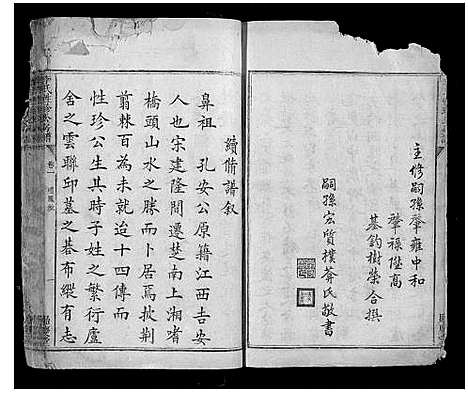 主修嗣孫肇雍中和
肇祿陞高
基鈞樹榮合撰
嗣孫宏質樸莽氏敬書
續脩譜叙
鼻祖 孔安公原籍江西吉安
人也宋建隆間遷楚南上湘啫
橋頭山水之勝而卜居焉披荆
翦棘百有餘年就迄十四傳而
性珍公生其時子姓之繁衍廬
舍之雲聯邱墓之碁布縱有志